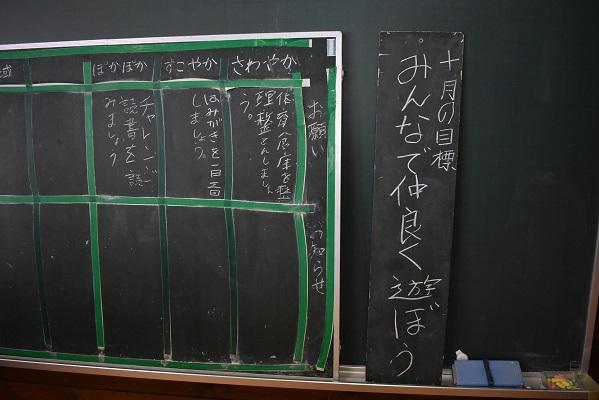 十月の目標
みんなで仲良く遊ぼう
お願い
お知らせ
さわやか
体育倉庫を整
理整とんしましょ
う。
すこやか
はみがきを一日三回
しましょう。
ぽかぽか
チャレンジ
読書を読
みましょう
域